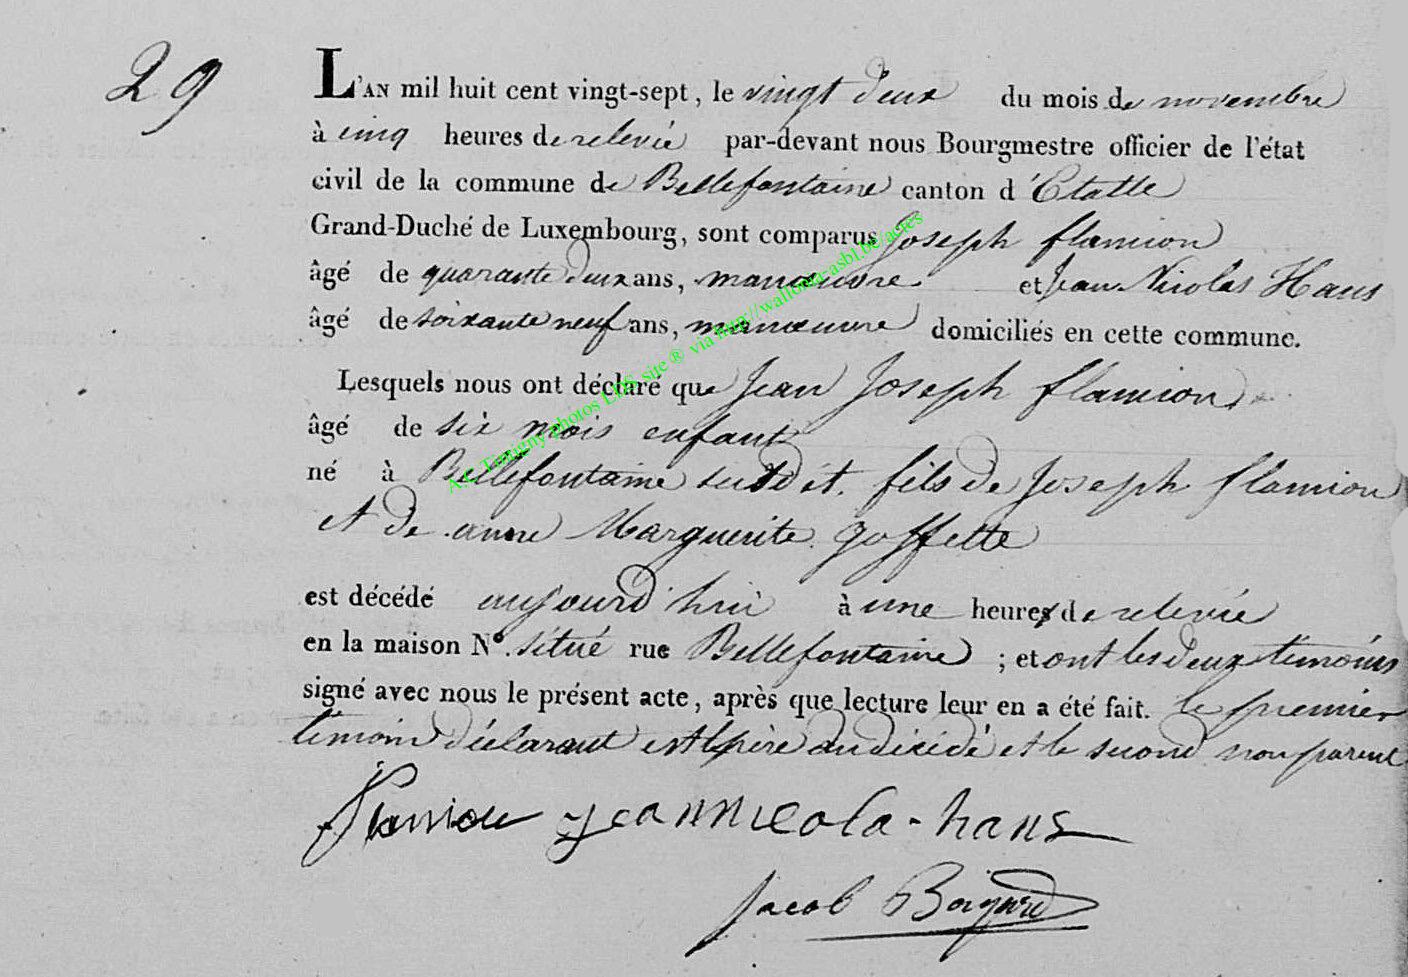 29
L'AN mil huit cent vingt-sept, le vingt deux du mois de novembre
à cinq heures de relevée par-devant nous Bourgmestre officier de l'état
civil de la commune de Bellefontaine canton d'Etalle
Grand-Duché de Luxembourg, sont comparus Joseph flamion
âgé de quarante deux ans, manoeuvre et Jean Nicolas Hans
âgé de soixante neuf ans, manoeuvre domiciliés en cette commune.
Lesquels nous ont déclaré que Jean Joseph flamion
âgé de six mois enfant
né à Bellefontaine susdit. fils de Joseph flamion
et de anne Marguerite goffette
est décédé aujourd'hui à une heures de relevée
en la maison N°. situé rue Bellefontaine ; et ont les deux témoins
signé avec nous le présent acte, après que lecture leur en a été fait. le premier
témoin déclarant est le père du décédé et le second non parent
flamion jean nicola-hans
Jacob
A.C. Tintigny photos LDS site ® via http://wallonia-asbl.be/actes